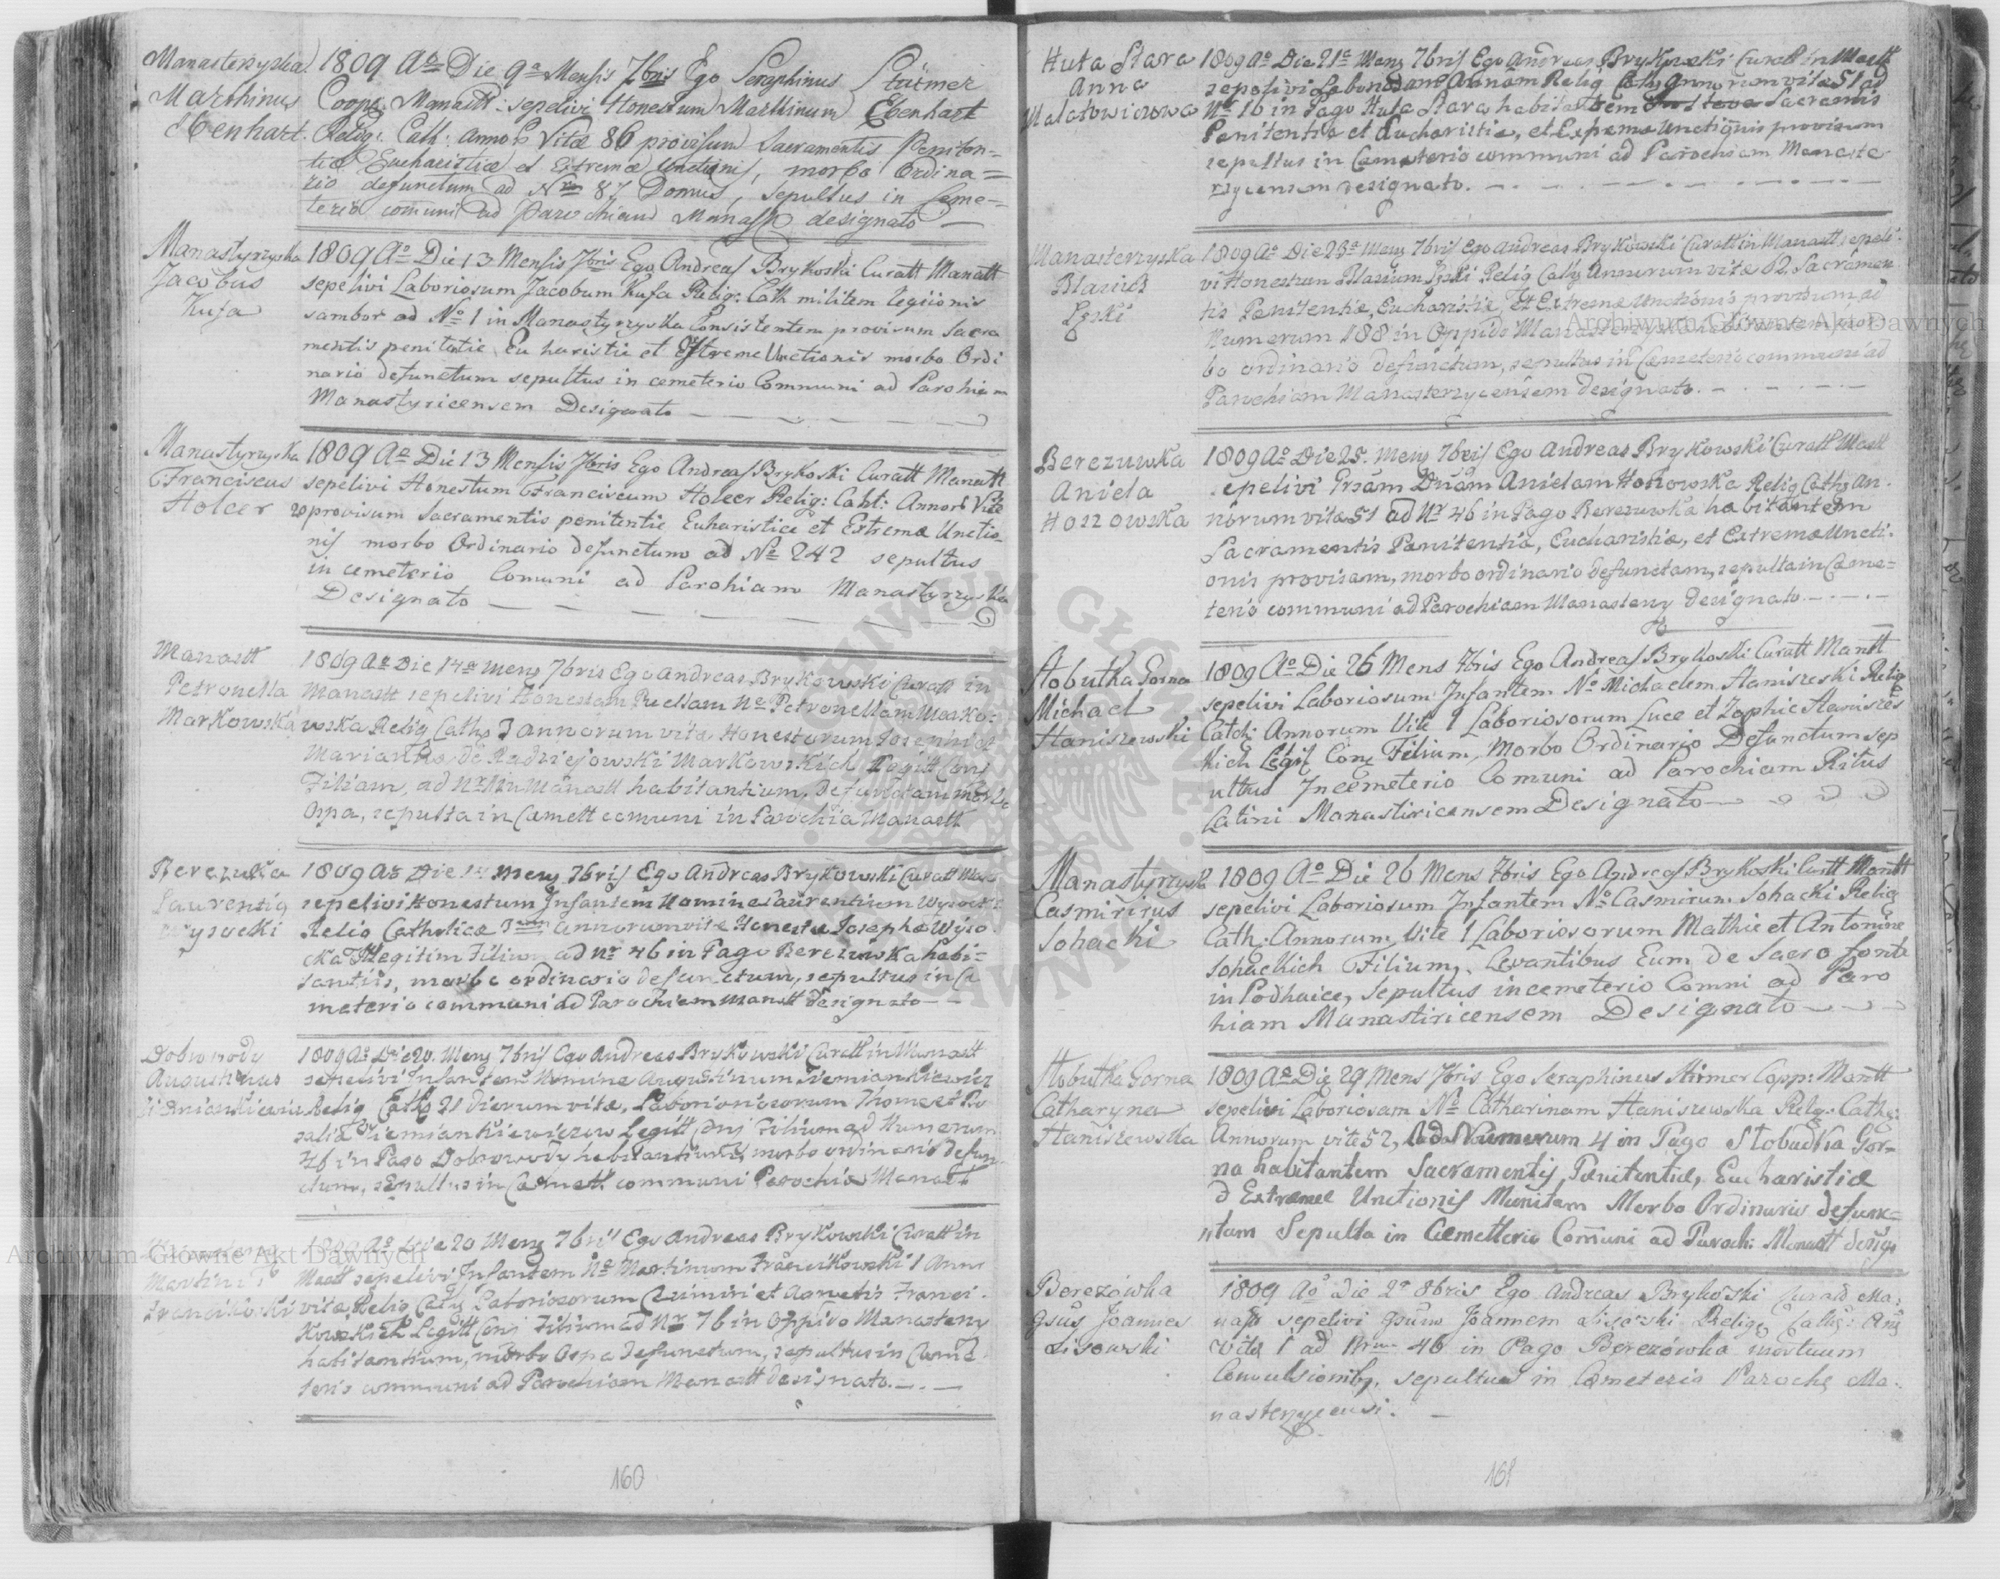 Manasterzyska
Marthinus
Ebenhart
1809 Ao Die 9a Mensis 7bris Ego Seraphinus Stirmer
Coop: Manastt: sepelivi Honestum Marthinum Ebenhart
Relig: Cath: Anno Vitæ 86 provisum Sacramentis Peniten=
tiæ Eucharistiæ et Extremæ Unctionis, morbo Ordina=
rio defunctum ad Nrm 87 Domus, sepultus in Ceme=
terio comuni ad Parochiam Manast designato
Manastyrzyska
Jacobus
Kufa
1809 Ao Die 13 Mensis 7bris Ego Andreas Brykoski Curatt Manatt
sepelivi Laboriosum Jacobum Kufa Relig: Cath militem legiionis
sambor ad No 1 in Manastyrzyska Consistentem provisum Sacra
mentis penitetie Eu haristie et Extreme Unctionis morbo Ordi
nario defunctum sepultus in cemeterio Communi ad Parohiam
Manastyricensem Designato
Manastyrzyska
Franciscus
Holcer
1809 Ao Die 13 Mensis 7bris Ego Andreas Brykoski Curatt Manatt
sepelivi Honestum Franciscum Holcer Relig: Caht: Annor: Vite
20 provisum Sacramentis penitentie Euharistice et Extremæ Unctio
nis morbo Ordinario defunctum ad No 242 sepultus
in cemeterio Comuni ad Parohiam Manastyrzyska
Designato
Manastt
Petronella
Markowska
1809 Ao Die 14a Mens 7bris Ego Andreas Brykowski Curatt in
Manastt sepelivi Honestam Puellam No Petronellam Marko=
wska Relig Catho 3 annorum vitæ Honestorum Josephi et
Mariannæ de Radziejowski Markowskich Legitt Conj
Filiam, ad Nr in Manastt habitantium, Defunctam morbo
Ospa, sepulta in Cæmett comuni in Parochia Manastt
Berezuwka
Laurentig
Wysocki
1809 Ao Die Mens 7bris Ego Andreas Brykowski Curatt
sepelivi Honestum Infantem Nomine Laurentium Wysocki
Relig Catholicæ 3 annorum vitæ Honestæ Josephæ Wyso
cka Illegitim Filium ad Nr 46 in Pago Berezuwka habi=
tantis, morbo ordinario defunctum, sepultus in Cæ
meterio communi ad Parochiam Manastt designato
Dobrowody
Augustinus
Ziemiankiewicz
1809 Ao Die 20. Mens 7bris Ego Andreas Brykowski Curatt in Manastt
sepelivi Infantem Nomine Augustinum Ziemiankiewicz
Relig Catho 21 dierum vitæ, Laboriosorum Thomæ et Ro
saliæ Ziemiankiewiczow Legitt Conj Filium ad Numerum
46 in Pago Dobrowody habitantium, morbo ordinario defun
ctum, sepultus in Cæmett communi Parochiæ Manastt
Martinus
Francikoski
1809 Ao Die 20 Mens 7bris Ego Andreas Brykowski Curatt in
Manatt sepelivi Infantem No Martinum Francikowski 1 Anni
vitæ Relig Catho Laboriosorum Casimiri et Agnetis Franci
kowskich Legitt Conj Filium ad Nr 76 in Oppido Manasterz
habitantium, morbo Ospa defunctum, sepultus in Cæme
terio communi ad Parochiam Manastt designato.
160
Huta Stara
Anna
Malatowiczowa
1809 Ao Die 21a Mens 7bris Ego Andreas Brykowski Curatt in Manatt
sepelivi Laboriosam Annam Relig Catho Annorum vitæ 51 ad
Nr 16 in Pago Huta Stara habitantem Sacramis
Penitentiæ et Eucharistiæ, et Extremæ Unctionis provisam
sepultus in Cæmeterio communi ad Parochiam Manaste
rzycensem designato.
Manasterzyska
Blasius
Łyski
1809 Ao Die 23a Mens 7bris Ego Andreas Brykowski Curatt in Manastt sepeli
vi Honestum Blasium Łyski Relig Catho Annorum vitæ 62 Sacramen
tis Penitentiæ, Eucharistiæ, Et Extremæ Unctionis provisum ad
Numerum 188 in Oppido Manasterzyska habitantem mor
bo ordinario defunctum, sepultus in Cæmeterio communi ad
Parochiam Manasterzycensem designato.
Berezuwka
Aniela
Hozzowska
1809 Ao Die 25. Mens 7bris Ego Andreas Brykowski Curatt Manatt
sepelivi Grsam Dnam Anielam Horowska Relig Catho An
norum vitæ 51 ad Nr 46 in Pago Berezuwka habitantem
Sacramentis Penitentiæ, Eucharistiæ, et Extremæ Uncti.
onis provisam, morbo ordinario defunctam, sepulta in Cæme=
terio communi ad Parochiam Manasterzy designato
Stobutka Gorna
Michael
Staniszewski
1809 Ao Die 26 Mens 7bris Ego Andreas Brykoski Curatt Mantt
sepelivi Laboriosum Infantem No Michaelem Staniszeski Relig
Catch: Annorum Vite 1 Laboriosorum Luce et Zophie Staniszes
kich Legis Conj Filium, Morbo Ordinario Defunctum sep
ultus In cemeterio Comuni ad Parochiam Ritus
Latini Manastiricensem Designato
Manastyrzysk
Casmirirus
Sohacki
1809 Ao Die 26 Mens 7bris Ego Andreas Brykoski Curtt Mantt
sepelivi Laboriosum Infantem No Casmirum Sohacki Relig
Cath: Annorum Vite 1 Laboriosorum Mathie et Antonine
Sohackich Filium, Levantibus Eum de Sacro fonte
in Podhaice, Sepultus in cemeterio Comni ad Paro
hiam Manastiricensem Designato
Stobutka Gorna
Catharyna
Staniszewska
1809 Ao Die 29 Mens 7bris Ego Seraphinus Stirmer Copp: Mantt
sepelivi Laboriosam No Catharinam Staniszewska Relg: Cath:
Annorum vite 52, ad Numerum 4 in Pago Stobudka Gor=
na habitantem Sacramentis Pænitentiæ, Eucharistiæ
& Extremæ Unctionis Munitam Morbo Ordinario defunc=
tam Sepulta in Cemetterio Comuni ad Paroch: Manastt desig
Berezówka
Gsus Joannes
Lisowski
1809 Ao Die 2a 8bris Ego Andreas Brykoski Curatt Ma,
nast sepelivi Gsum Joannem Lisowski Relige Catho: Ann
vitæ 1 ad Nrum 46 in Pago Berezówka mortuum
Convulsionibg, sepultus in Cæmeterio Paroche Ma,
nasterzycensi.
161
Archiwum Główne Akt Dawnych
Archiwum Główne Akt Dawnych